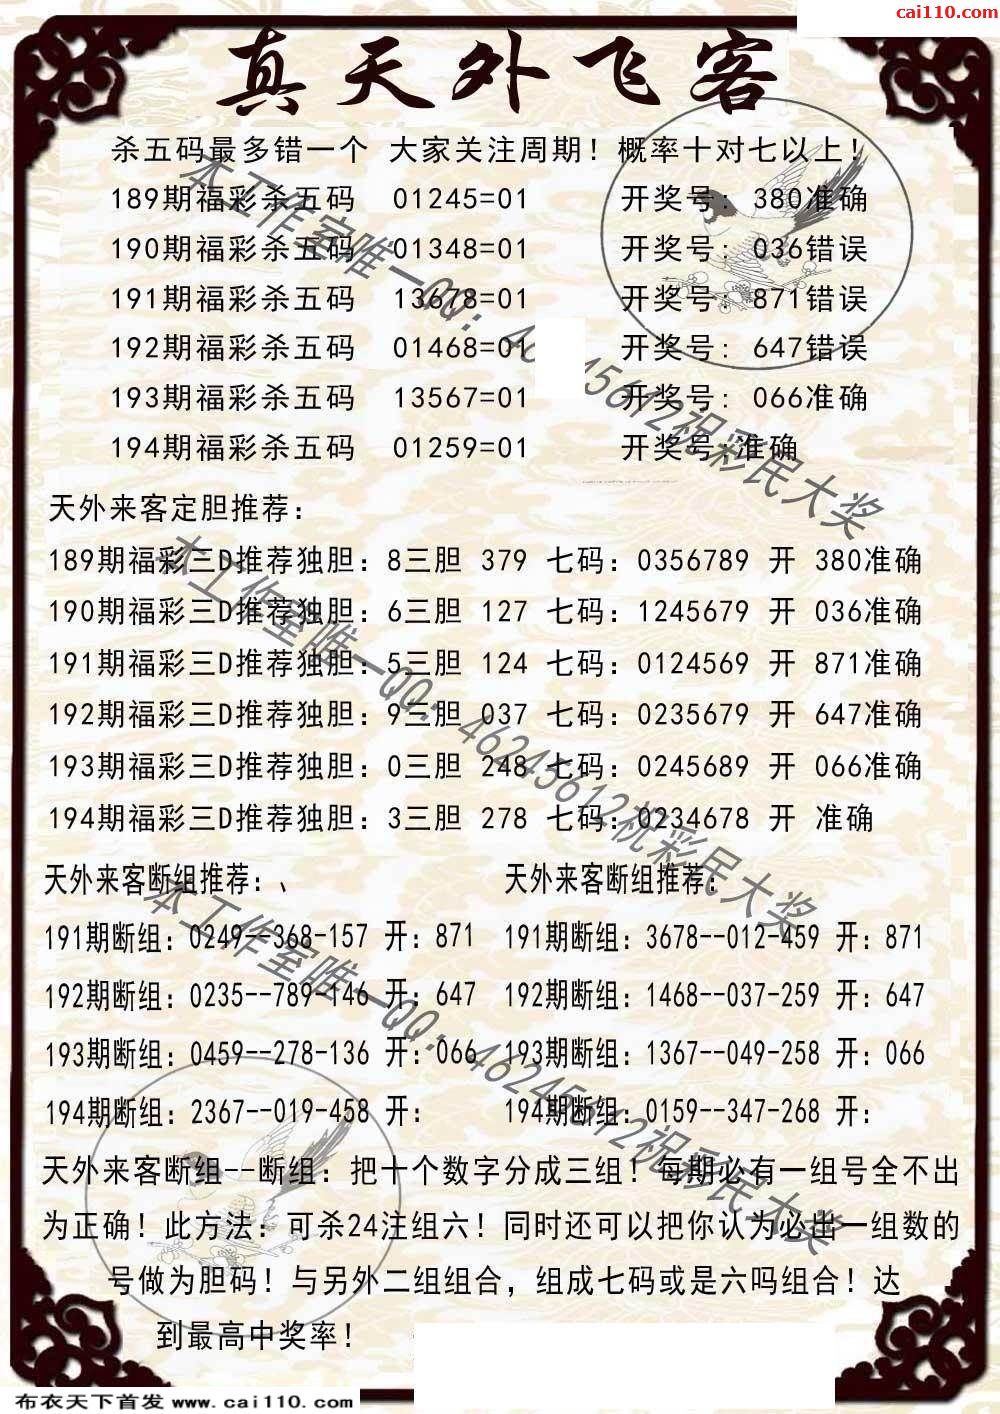 cai110.com
真天外飞客
杀五码最多错一个 大家关注周期！概率十对七以上！
189期福彩杀五码 01245=01 开奖号：380准确
190期福彩杀五码 01348=01 开奖号：036错误
191期福彩杀五码 13678=01 开奖号：871错误
192期福彩杀五码 01468=01 开奖号：647错误
193期福彩杀五码 13567=01 开奖号：066准确
194期福彩杀五码 01259=01 开奖号:准确
天外来客定胆推荐：
189期福彩三D推荐独胆：8三胆 379 七码：0356789 开 380准确
190期福彩三D推荐独胆：6三胆 127 七码：1245679 开 036准确
191期福彩三D推荐独胆：5三胆 124 七码：0124569 开 871准确
192期福彩三D推荐独胆：9三胆 037 七码：0235679 开 647准确
193期福彩三D推荐独胆：0三胆 248 七码：0245689 开 066准确
194期福彩三D推荐独胆：3三胆 278 七码：0234678 开 准确
天外来客断组推荐：、 天外来客断组推荐：
191期断组：0249--368-157 开：871 191期断组：3678--012-459 开：871
192期断组：0235--789-146 开：647 192期断组：1468--037-259 开：647
193期断组：0459--278-136 开：066 193期断组：1367--049-258 开：066
194期断组：2367--019-458 开： 194期断组：0159--347-268 开：
天外来客断组--断组：把十个数字分成三组！每期必有一组号全不出
为正确！此方法：可杀24注组六！同时还可以把你认为必出一组数的
号做为胆码！与另外二组组合，组成七码或是六吗组合！达
到最高中奖率！
本工作室唯一QQ：46245612祝彩民大奖
本工作室唯一QQ：46245612祝彩民大奖
本工作室唯一QQ：46245612祝彩民大奖
布衣天下首发 www.cai110.com